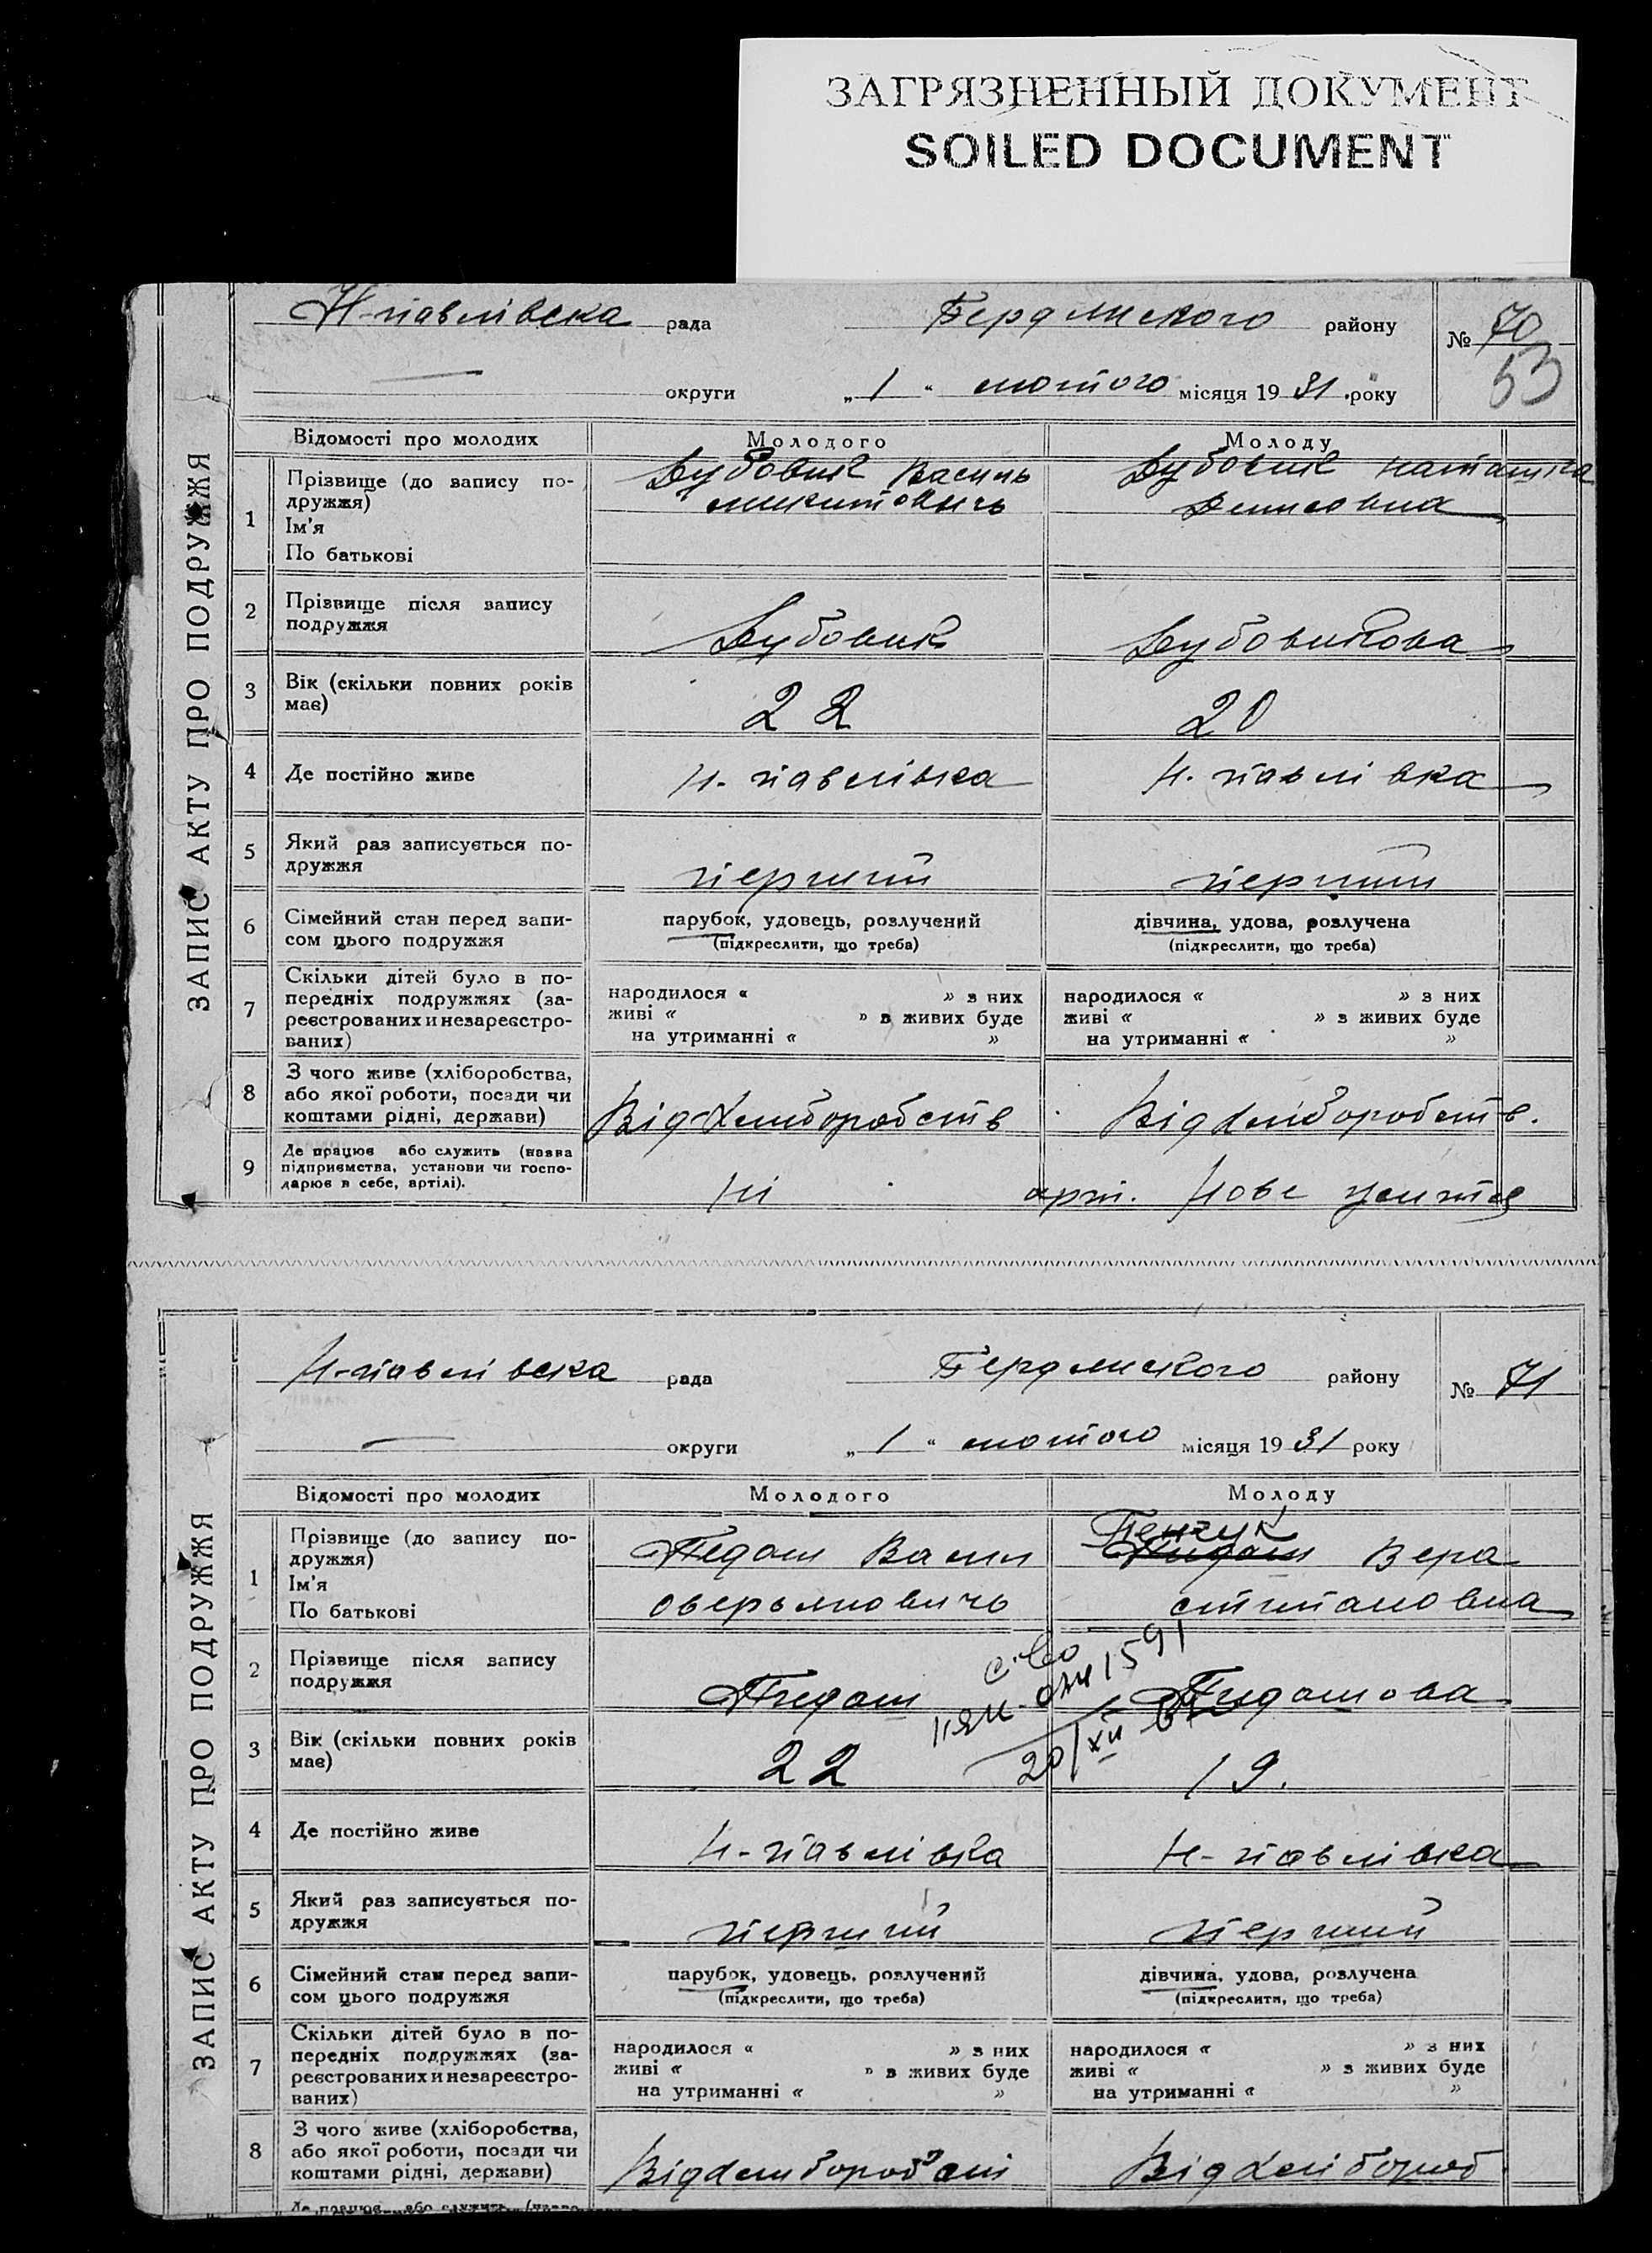 ЗАГРЯЗНЕННЫЙ ДОКУМЕНТ
SOILED DOCUMENT
Н-павлівска рада Бердянского району № 70
53
округи „1“ лютого місяця 1931 року
ЗАПИС АКТУ ПРО ПОДРУЖЖЯ
Відомості про молодих Молодого Молоду
1 Прізвище (до запису по-
дружжя)
Ім'я
По батькові
Дубовик Василь
микитовичь
Дубовик наташка
Денисовна
2 Прізвище після запису
подружжя
Дубовик Дубовикова
3 Вік (скільки повних років
має)
22 20
4 Де постійно живе Н. павлівка Н. павлівка
5 Який раз записується по-
дружжя
перший перший
6 Сімейний стан перед запи-
сом цього подружжя
парубок, удовець, розлучений
(підкреслити, що треба)
дівчина, удова, розлучена
(підкреслити, що треба)
7 Скільки дітей було в по-
передніх подружжях (за-
реєстрованих и незареєстро-
ваних)
народилося « » з них
живі « » в живих буде
на утриманні « »
народилося « » з них
живі « » з живих буде
на утриманні « »
8 З чого живе (хліборобства,
або якої роботи, посади чи
коштами рідні, держави)
Від Хлиборобств Від Хліборобств.
9 Де працює або служить (назва
підприємства, установи чи госпо-
дарює в себе, артілі).
Ні арт. Нове життя
Н-павлівска рада Бердянского району № 71
округи „1“ лютого місяця 1931 року
ЗАПИС АКТУ ПРО ПОДРУЖЖЯ
Відомості про молодих Молодого Молоду
1 Прізвище (до запису по-
дружжя)
Ім'я
По батькові
Педаш Васил
оверьяновичь
Пенчук
Вера
стипановна
2 Прізвище після запису
подружжя
Пидаш Пидашова
1591
20/XII
3 Вік (скільки повних років
має)
22 19.
4 Де постійно живе Н-павлівка Н-павлівка
5 Який раз записується по-
дружжя
перший перший
6 Сімейний стан перед запи-
сом цього подружжя
парубок, удовець, розлучений
(підкреслити, що треба)
дівчина, удова, розлучена
(підкреслити, що треба)
7 Скільки дітей було в по-
передніх подружжях (за-
реєстрованих и незареєстро-
ваних)
народилося « » з них
живі « » в живих буде
на утриманні « »
народилося « » з них
живі « » з живих буде
на утриманні « »
8 З чого живе (хліборобства,
або якої роботи, посади чи
коштами рідні, держави)
Від Хлібороб